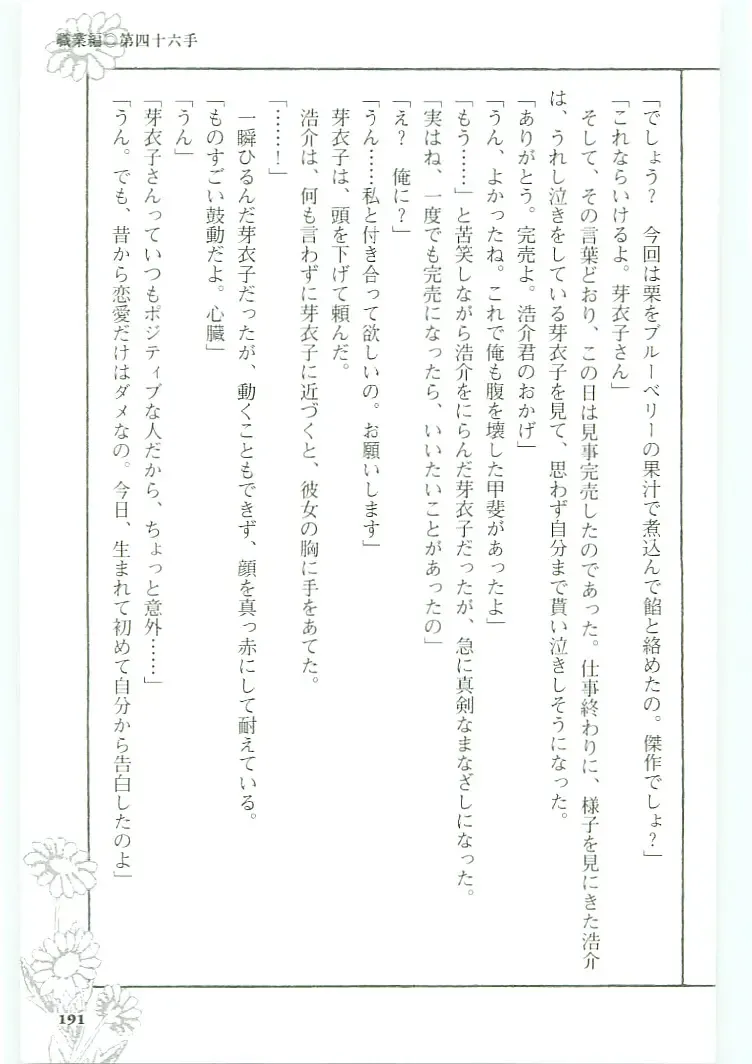 職業編○第四十六手
「でしょう？　今回は栗をブルーベリーの果汁で煮込んで餡と絡めたの。傑作でしょ？」
「これならいけるよ。芽衣子さん」
　そして、その言葉どおり、この日は見事完売したのであった。仕事終わりに、様子を見にきた浩介
は、うれし泣きをしている芽衣子を見て、思わず自分まで貰い泣きしそうになった。
「ありがとう。完売よ。浩介君のおかげ」
「うん、よかったね。これで俺も腹を壊した甲斐があったよ」
「もう……」と苦笑しながら浩介をにらんだ芽衣子だったが、急に真剣なまなざしになった。
「実はね、一度でも完売になったら、いいたいことがあったの」
「え？　俺に？」
「うん……私と付き合って欲しいの。お願いします」
　芽衣子は、頭を下げて頼んだ。
　浩介は、何も言わずに芽衣子に近づくと、彼女の胸に手をあてた。
「……！」
　一瞬ひるんだ芽衣子だったが、動くこともできず、顔を真っ赤にして耐えている。
「ものすごい鼓動だよ。心臓」
「うん」
「芽衣子さんっていつもポジティブな人だから、ちょっと意外……」
「うん。でも、昔から恋愛だけはダメなの。今日、生まれて初めて自分から告白したのよ」
191